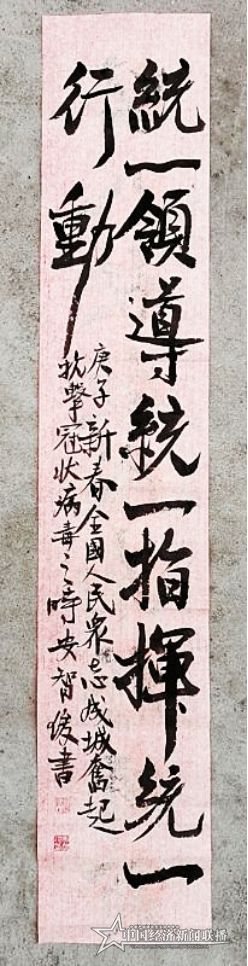 統一領導統一指揮統一
行動
庚子新春全國人民衆志成城奮起
抗擊冠狀病毒之時安智俊書
中国经济新闻联播